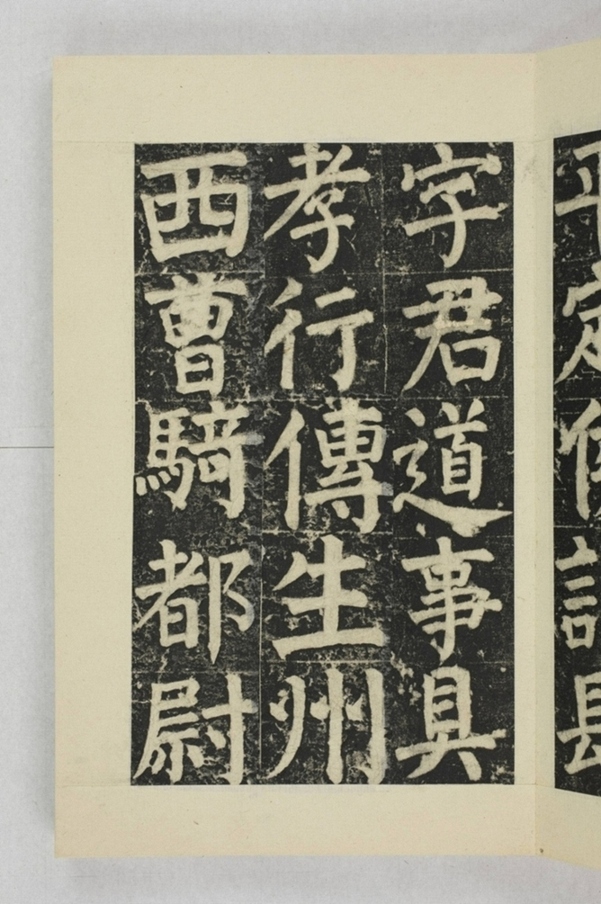 字君道事具
孝行傳生州
西曹騎都尉